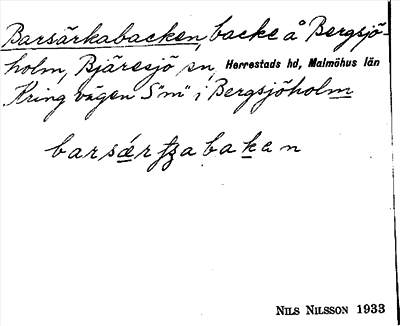 Barsärkabacken, backe å Bergsjö-
holm, Bjäresjö sn, Herrestads hd, Malmöhus län
Kring vägen S "m" i Bergsjöholm
barsærʈʂabakan
NILS NILSSON 1933